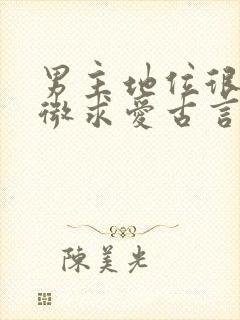 男主地位很
微求愛古言
陳美光